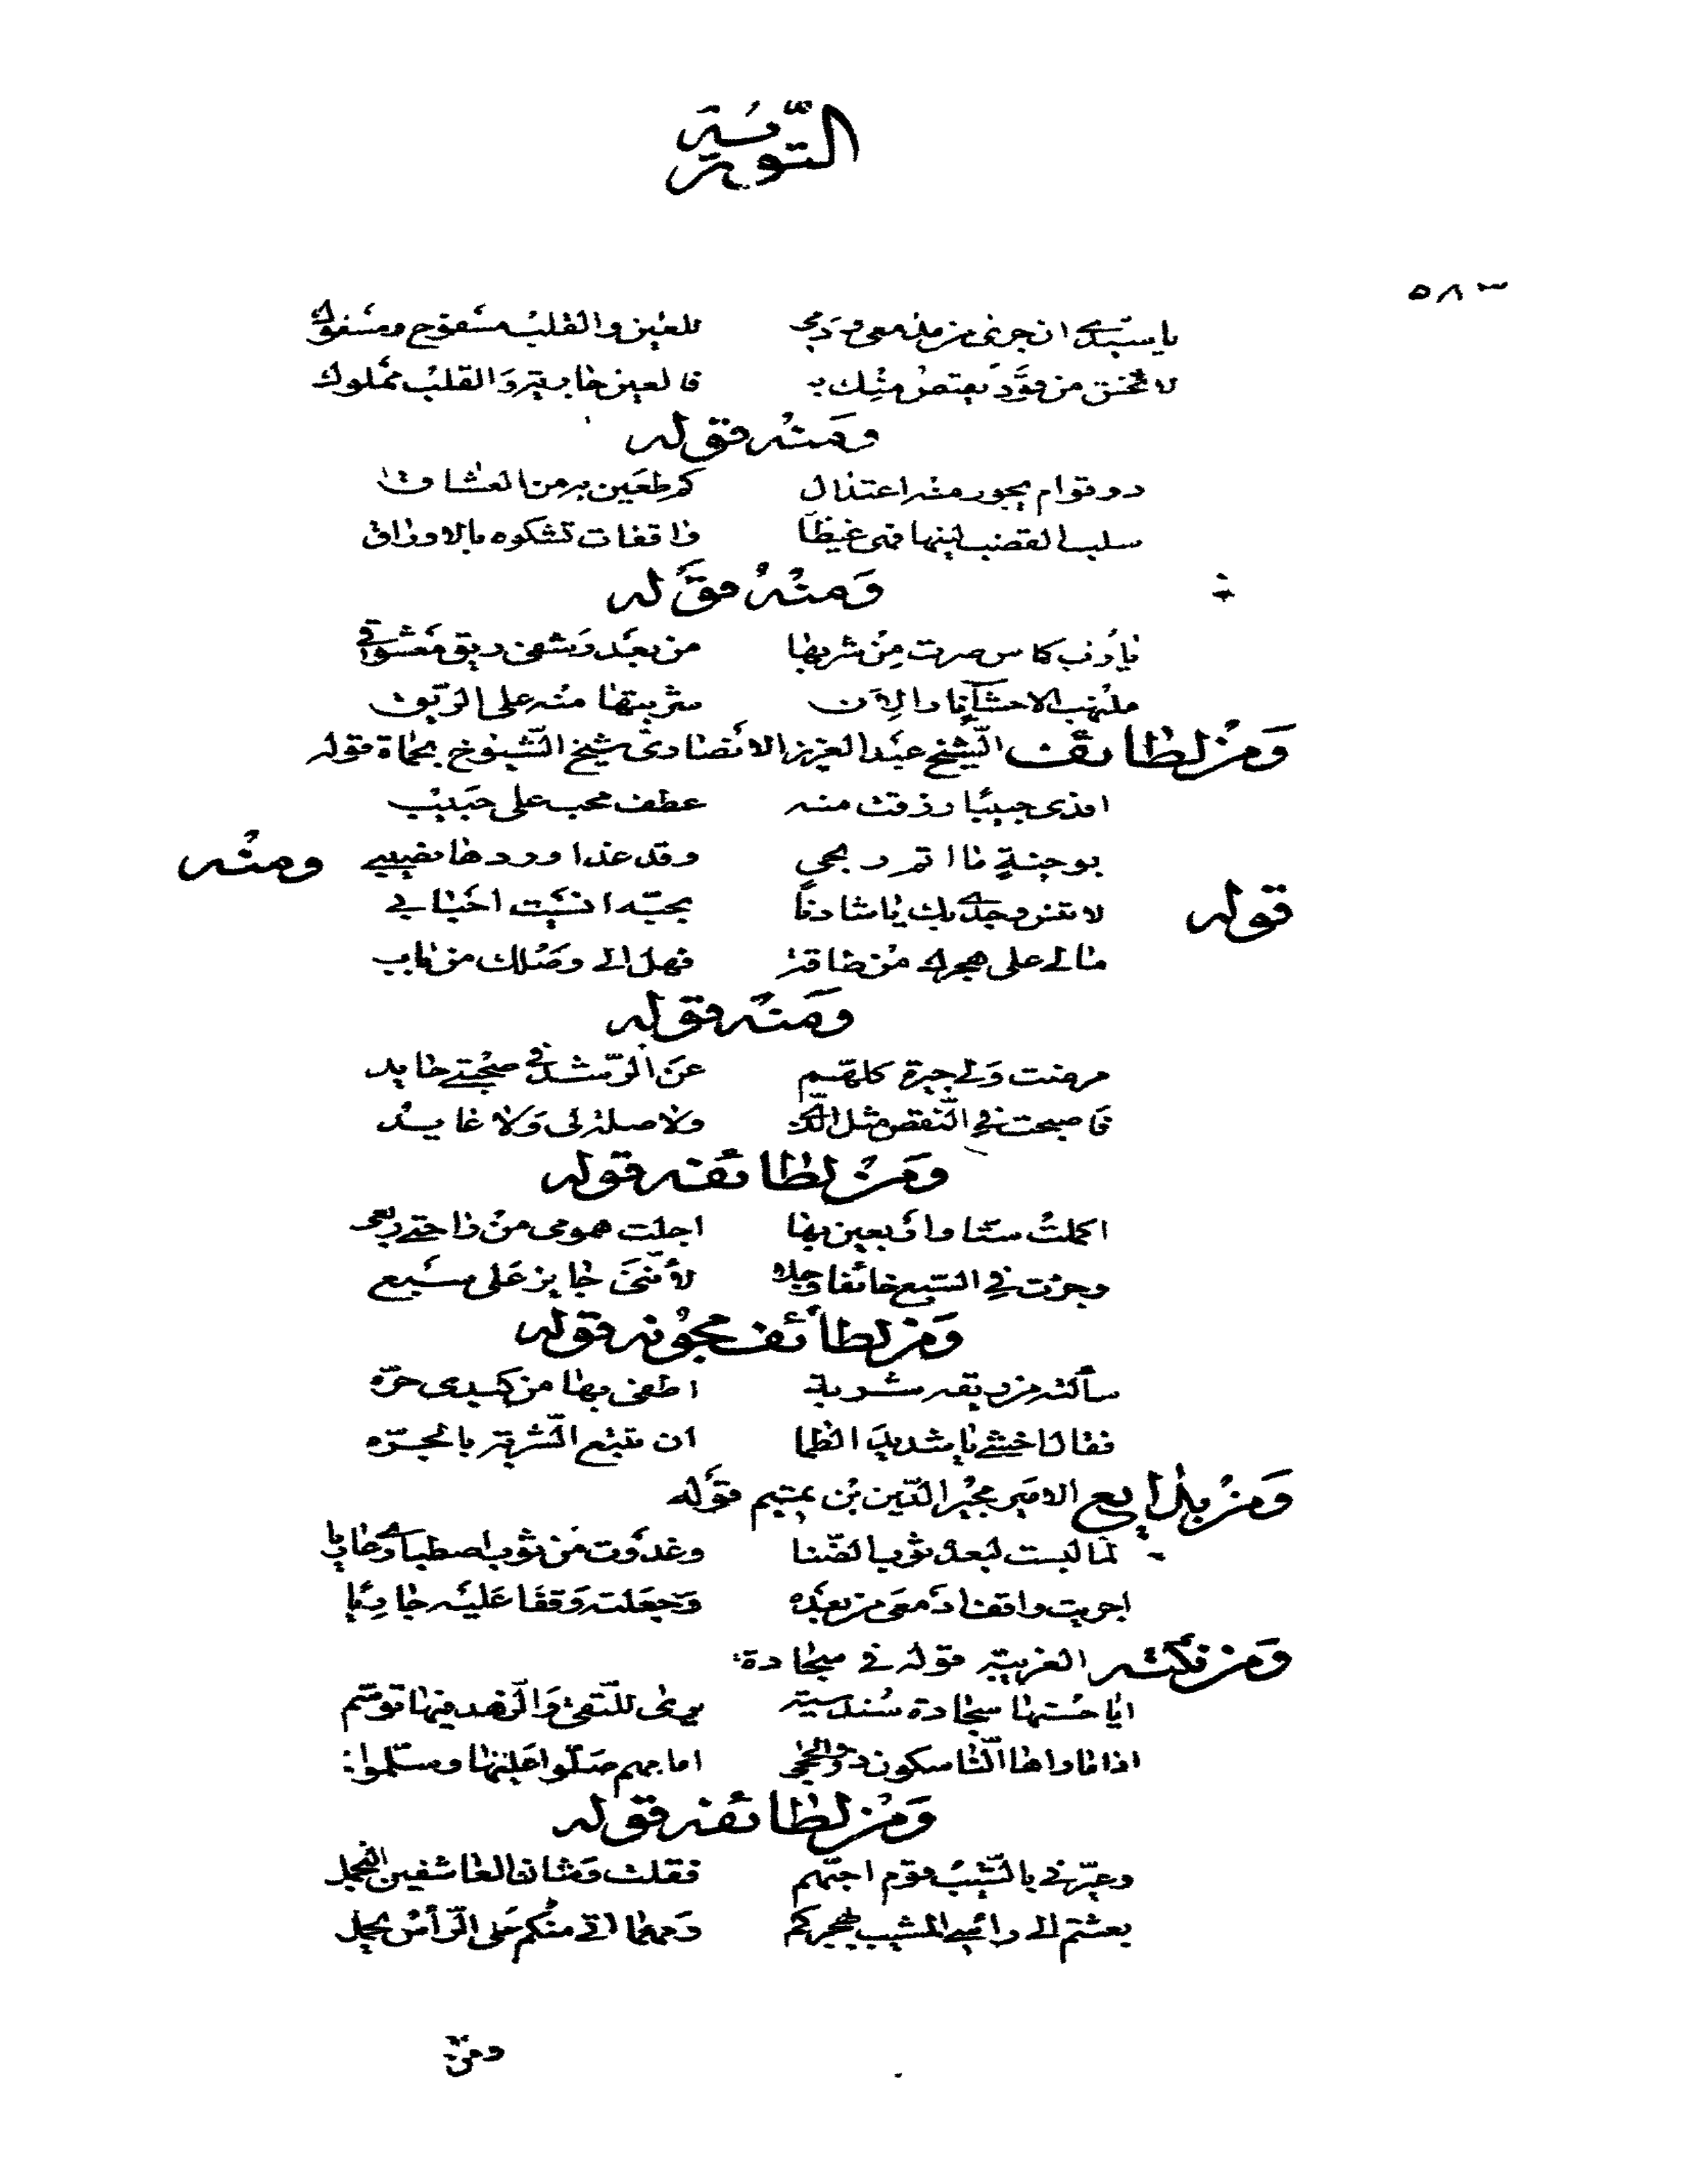 التّورية
٥٨٣
يا سيّدي ان جرى من مدمعي ودمي للعين والقلب مسفوح ومسفوك
لا تخش من قود يقتص منك به فالعين جارية والقلب مملوك
ومنه قوله
ذو قوام يجور منه اعتدال كم طعين به من العشاق
سلب القضب لينها فهي غيظا واقفات تشكوه بالاوراق
ومنه قوله
يا رب كاس صرت من شربها من بعد رشفي ريق معشوقي
ملتهب الاحشا والان شربتها منه على الريق
ومن لطائف الشيخ عبد العزيز الانصاري شيخ الشيوخ بحماة قوله
افدي حبيبا رزقت منه عطف محب على حبيب
بوجنة ما اتم ربحي وقد غدا وردها نصيبي ومنه
قوله لا تنس وجدي بك يا شادنا بحبّه انسيت احبابي
مالي على هجرك من طاقة فهل الى وصلك من باب
ومنه قوله
مرضت ولي جيرة كلهم عن الرّشد في صحبتي حايد
فاصبحت في النّقص مثل الّذي ولا صلة لى ولا عايد
ومن لطائفه قوله
اكملت ستّا واربعين بها اجلت همومي من راحتي ربعي
وجزت في السّبع خائفا وجلا لأنّني جايز على سبع
ومن لطائف مجونه قوله
سألته من ريقه شربة اطفي بها من كبدي حرّه
فقال اخشى يا شديد الظما ان تتبع الشربة بالجرّه
ومن بدايع الامير مجير الدّين بن تميم قوله
لما لبست لبعده ثوب الضّنا وغدوت من ثوب اصطباري عاريا
اجريت واقف دمعي من بعده وجعلته وقفا عليه جاريا
ومن نكته الغريبة قوله في سجادة
ايا حسنها سجادة سندسية يرى للتّقى والزهد فيها توسّم
اذا ما راها النّاسكون ذوو الحجى امامهم صلّوا عليها وسلّموا
ومن لطائفه قوله
وعيّرني بالشّيب قوم احبّهم فقلت وشان العاشقين التجمل
بعثتم الى راسي المشيب بهجركم ومهما اتى منكم على الرّأس يحمل
ومن